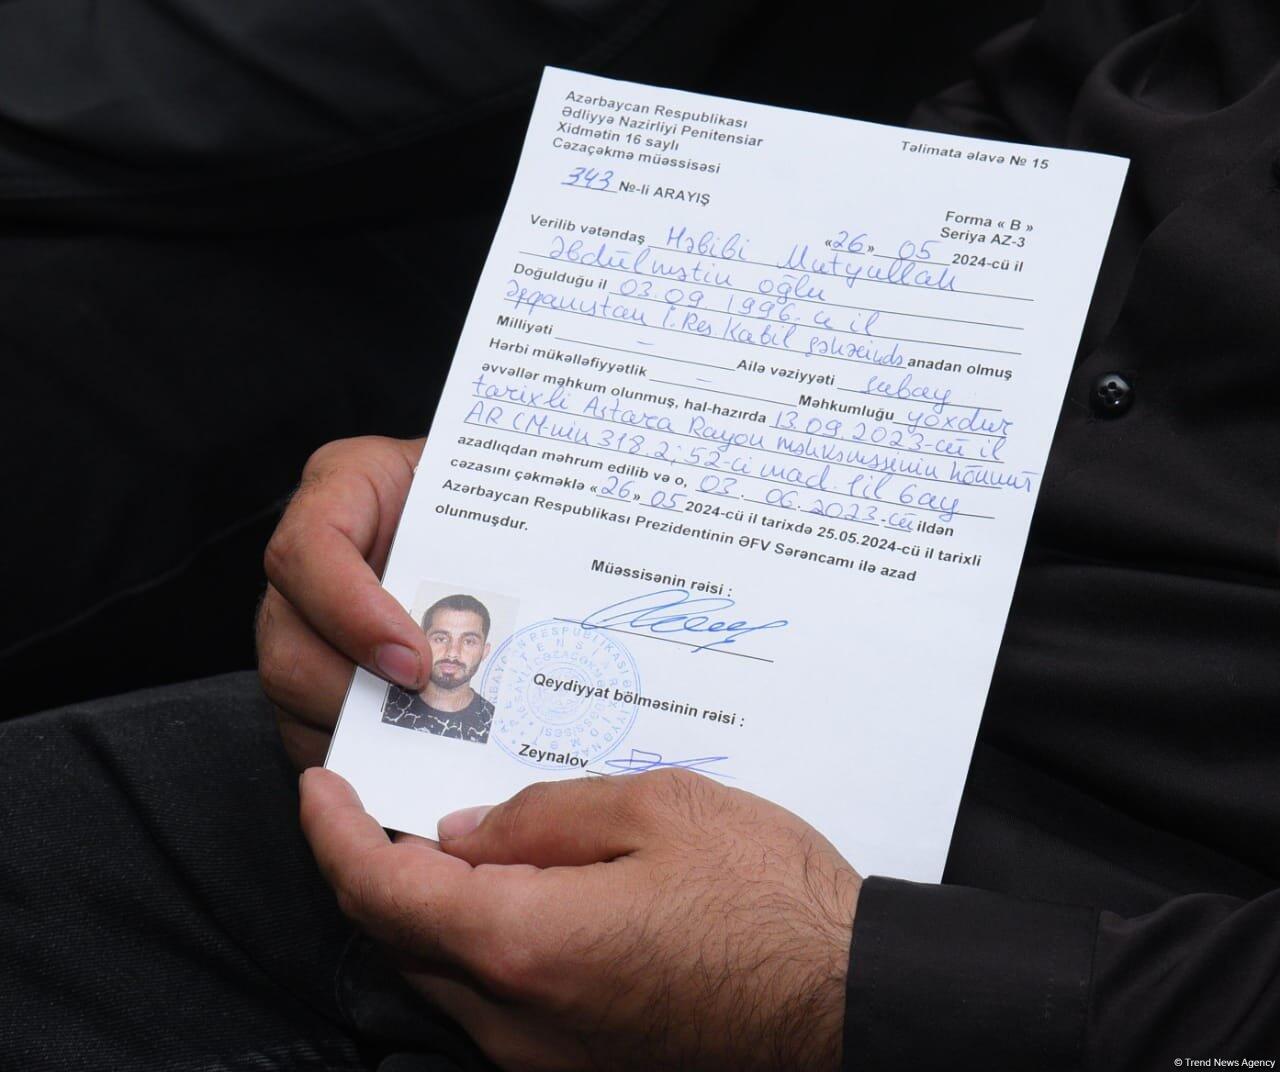 Azərbaycan Respublikası
Ədliyyə Nazirliyi Penitensiar
Xidmətin 16 saylı
Cəzaçəkmə müəssisəsi
Təlimata əlavə № 15
343 №-li ARAYIŞ
Forma « B »
Seriya AZ-3
«26» 05 2024-cü il
Verilib vətəndaş Həbibi Mutyullah
Əbdülmətin oğlu
Doğulduğu il 03.09.1996-cı il
Əfqanıstan İ.Res. Kabil şəhərində anadan olmuş
Milliyəti – Ailə vəziyyəti subay
Hərbi mükəlləfiyyətlik – Məhkumluğu yoxdur
əvvəllər məhkum olunmuş, hal-hazırda 13.09.2023-cü il
tarixli Astara Rayon məhkəməsinin hökmü
AR CM-nin 318.2; 52-ci mad. 1 il 6 ay
azadlıqdan məhrum edilib və o, 03. 06. 2023-cü ildən
cəzasını çəkməklə «26» 05 2024-cü il tarixdə 25.05.2024-cü il tarixli
Azərbaycan Respublikası Prezidentinin ƏFV Sərəncamı ilə azad
olunmuşdur.
Müəssisənin rəisi :
Qeydiyyat bölməsinin rəisi :
Zeynalov
© Trend News Agency